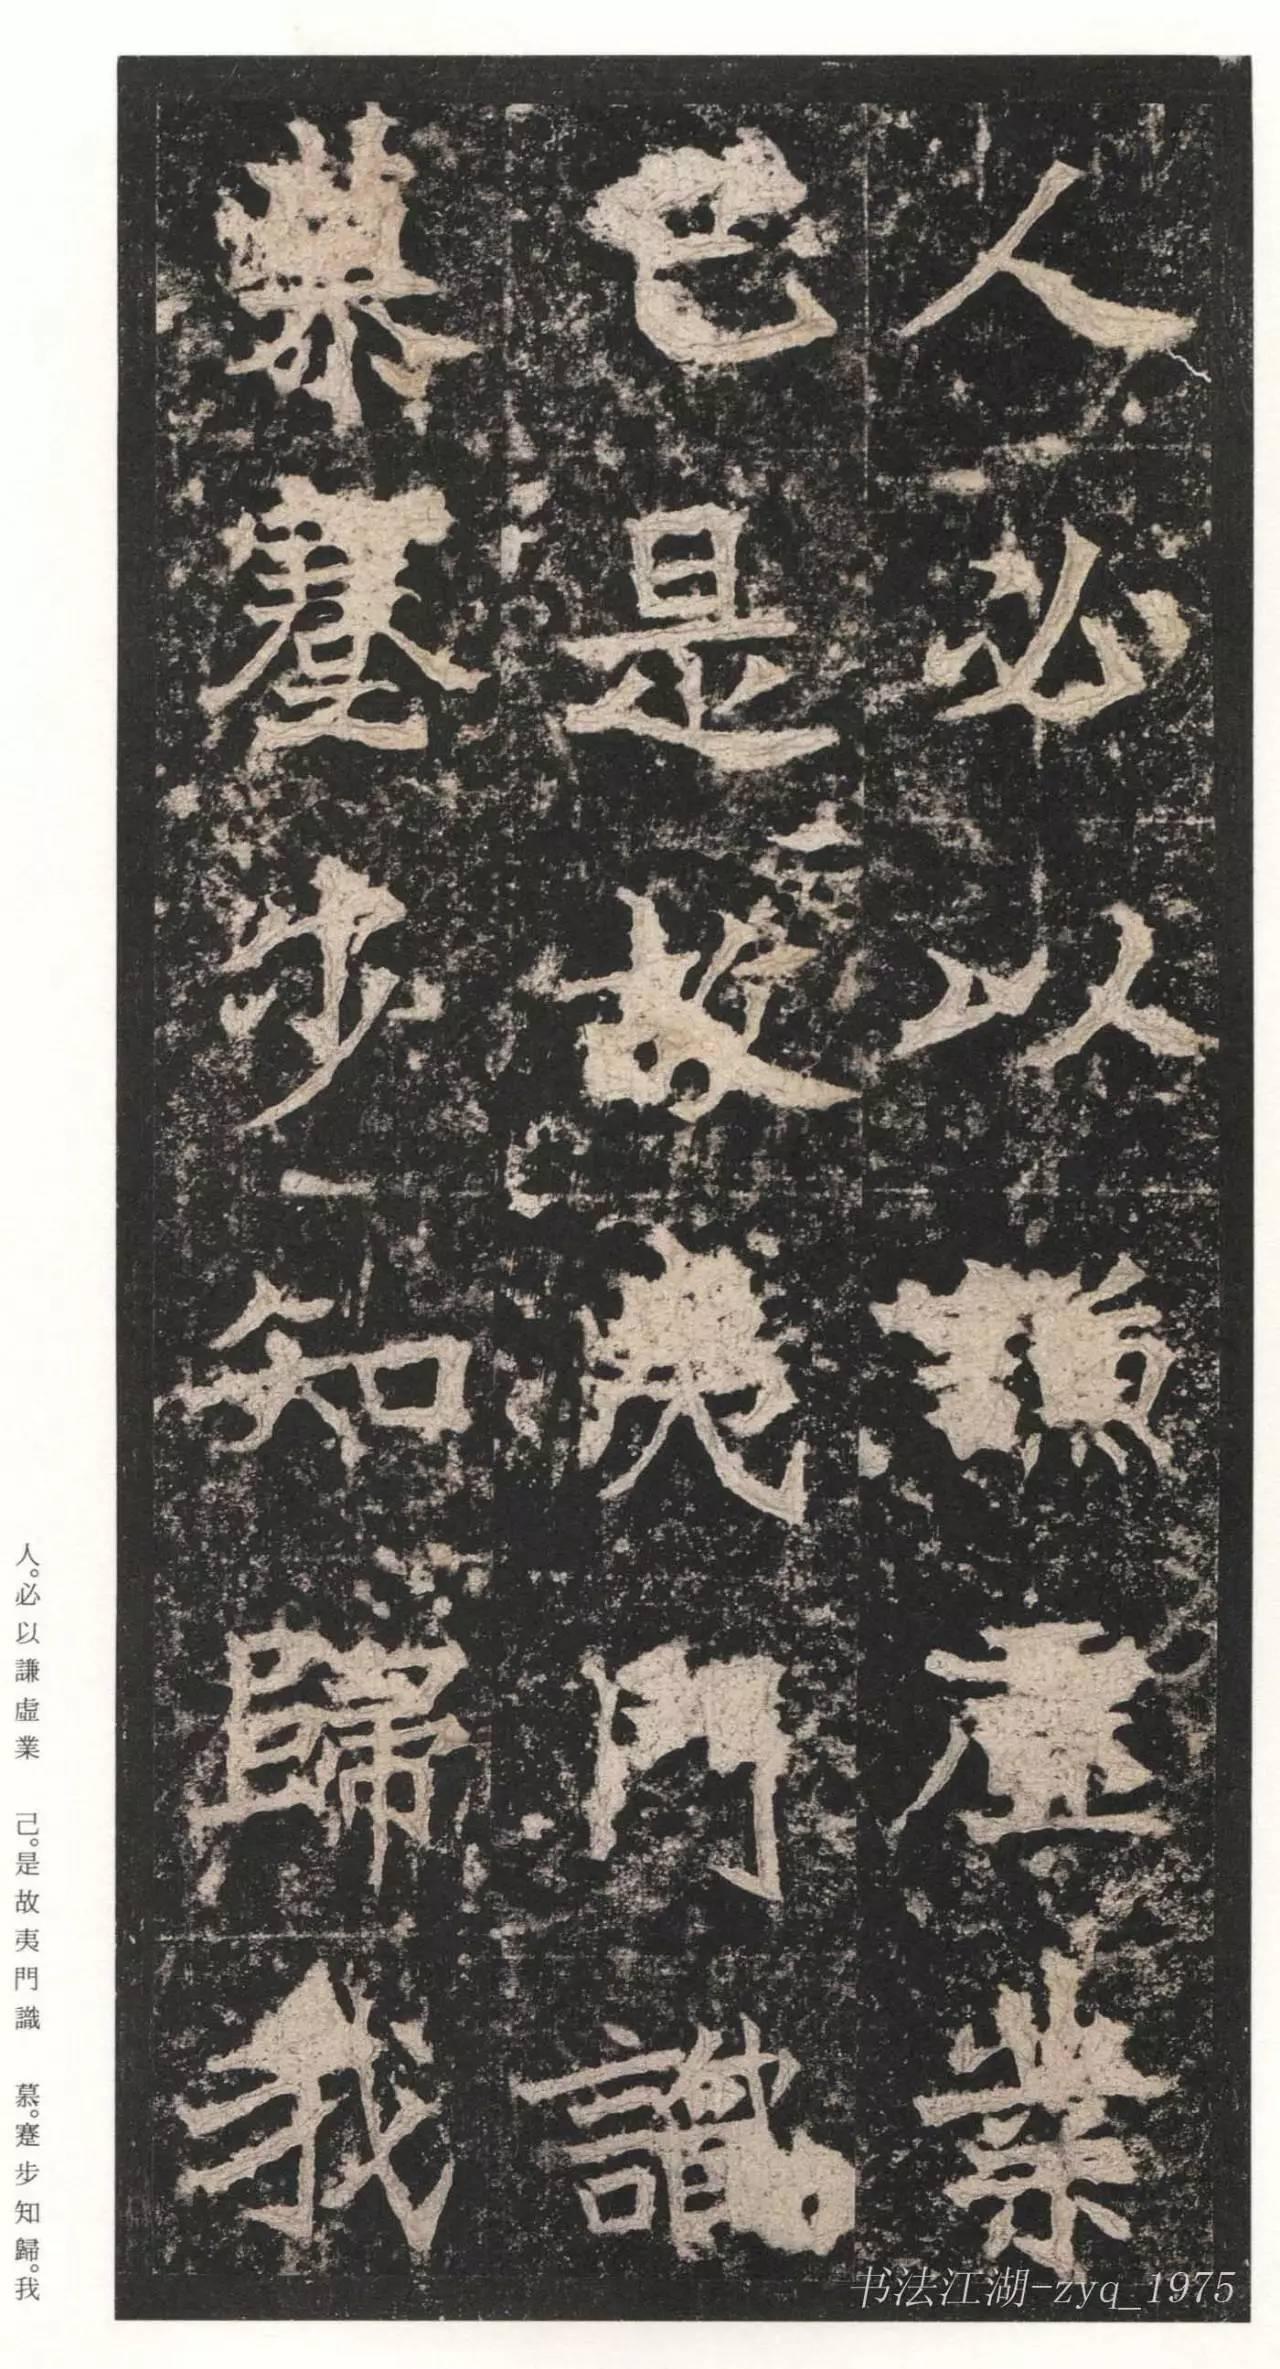 人必以謙虛業
己是故夷門識
慕蹇步知歸我
人。必以謙虛業 己。是故夷門識 慕。蹇步知歸。我
书法江湖-zyq_1975